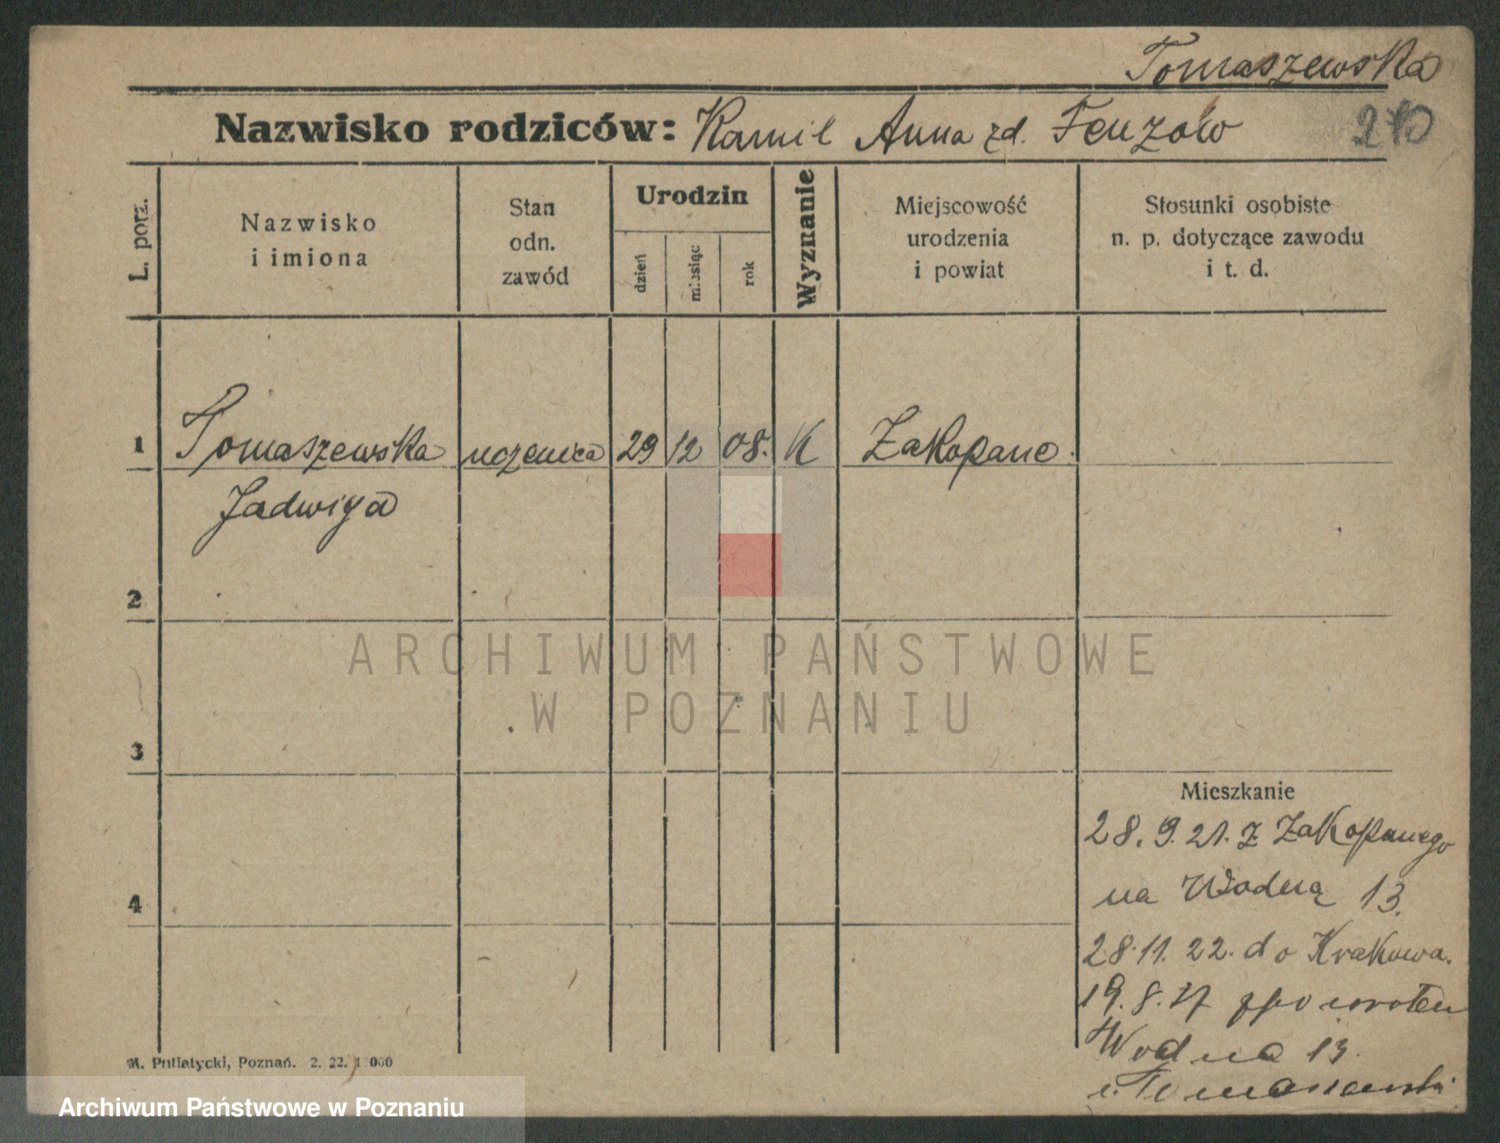 Tomaszewska
Nazwisko rodziców: Kamil Anna zd. Fenzów
210
L. porz.
Nazwisko
i imiona
Stan
odn.
zawód
Urodzin
dzień
miesiąc
rok
Wyznanie
Miejscowość
urodzenia
i powiat
Słosunki osobiste
n. p. dotyczące zawodu
i t. d.
1 Tomaszewska uczenica 29 12 08. K Zakopane.
Jadwiga
2
ARCHIWUM PAŃSTWOWE
W POZNANIU
3
Mieszkanie
28.9.21. z Zakopanego
na Wodną 13.
4
28.11.22. do Krakowa.
19.8.27
Wodna 13.
Tomaszewski
M. Putiatycki, Poznań. 2. 22. 1 000
Archiwum Państwowe w Poznaniu